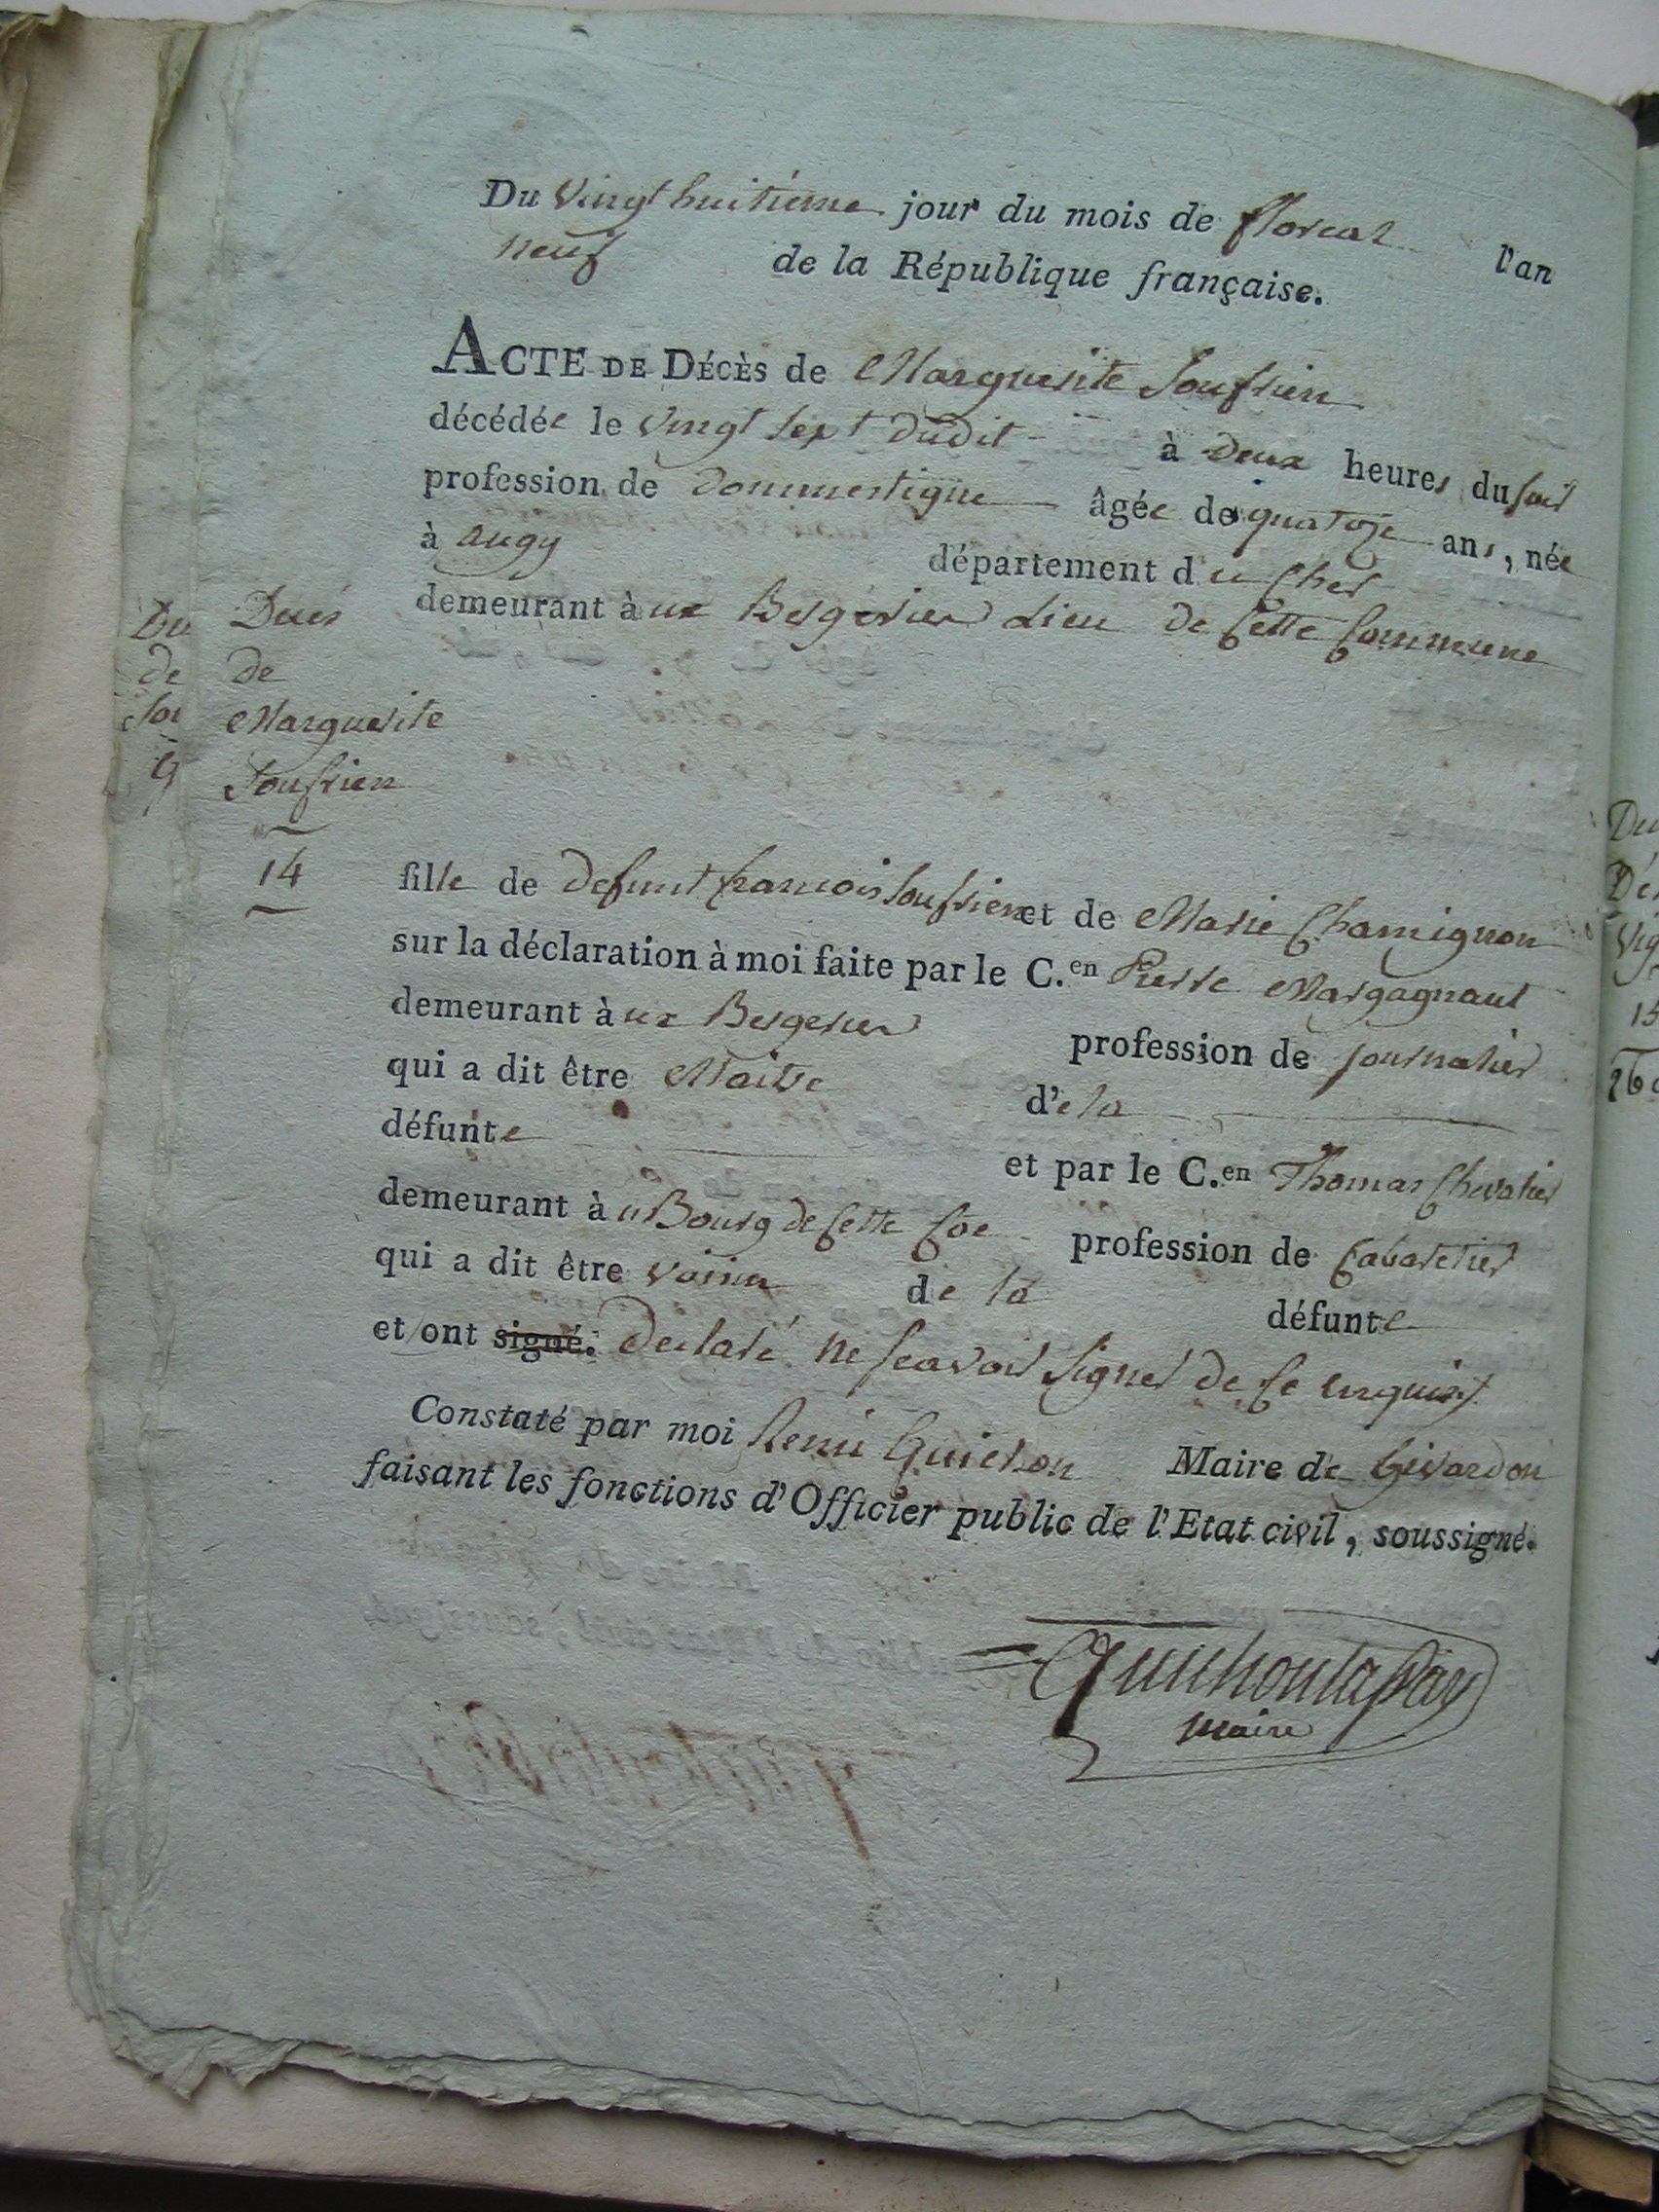 Du Vingt huitième jour du mois de floreal l'an
neuf de la République française.
ACTE DE DÉCÈS de Marguerite Soufrien
décédée le vingt sept dudit à Deux heures du soir
profession de dommestique âgée de quatoze ans, née
à augy département du Cher
demeurant à ux Bergeries Lieu de Cette Commune
Decés
de
Marguerite
Soufrien
14
fille de Defunt francois Soufrien et de Marie Chamignon
sur la déclaration à moi faite par le C.en Pierre Margagnaut
demeurant à ux Bergeries profession de journalier
qui a dit être Maitre d'e la
défunte et par le C.en Thomas Chevalier
demeurant à u Bourg de Cette Coe profession de Cabaretier
qui a dit être voisin de la défunte
et ont signé. Declaré ne scavoir signer de Ce enquis
Constaté par moi Remi Guichon Maire de Givardon
faisant les fonctions d'Officier public de l'Etat civil, soussigné.
maire
Du
de
Du
Vig
15